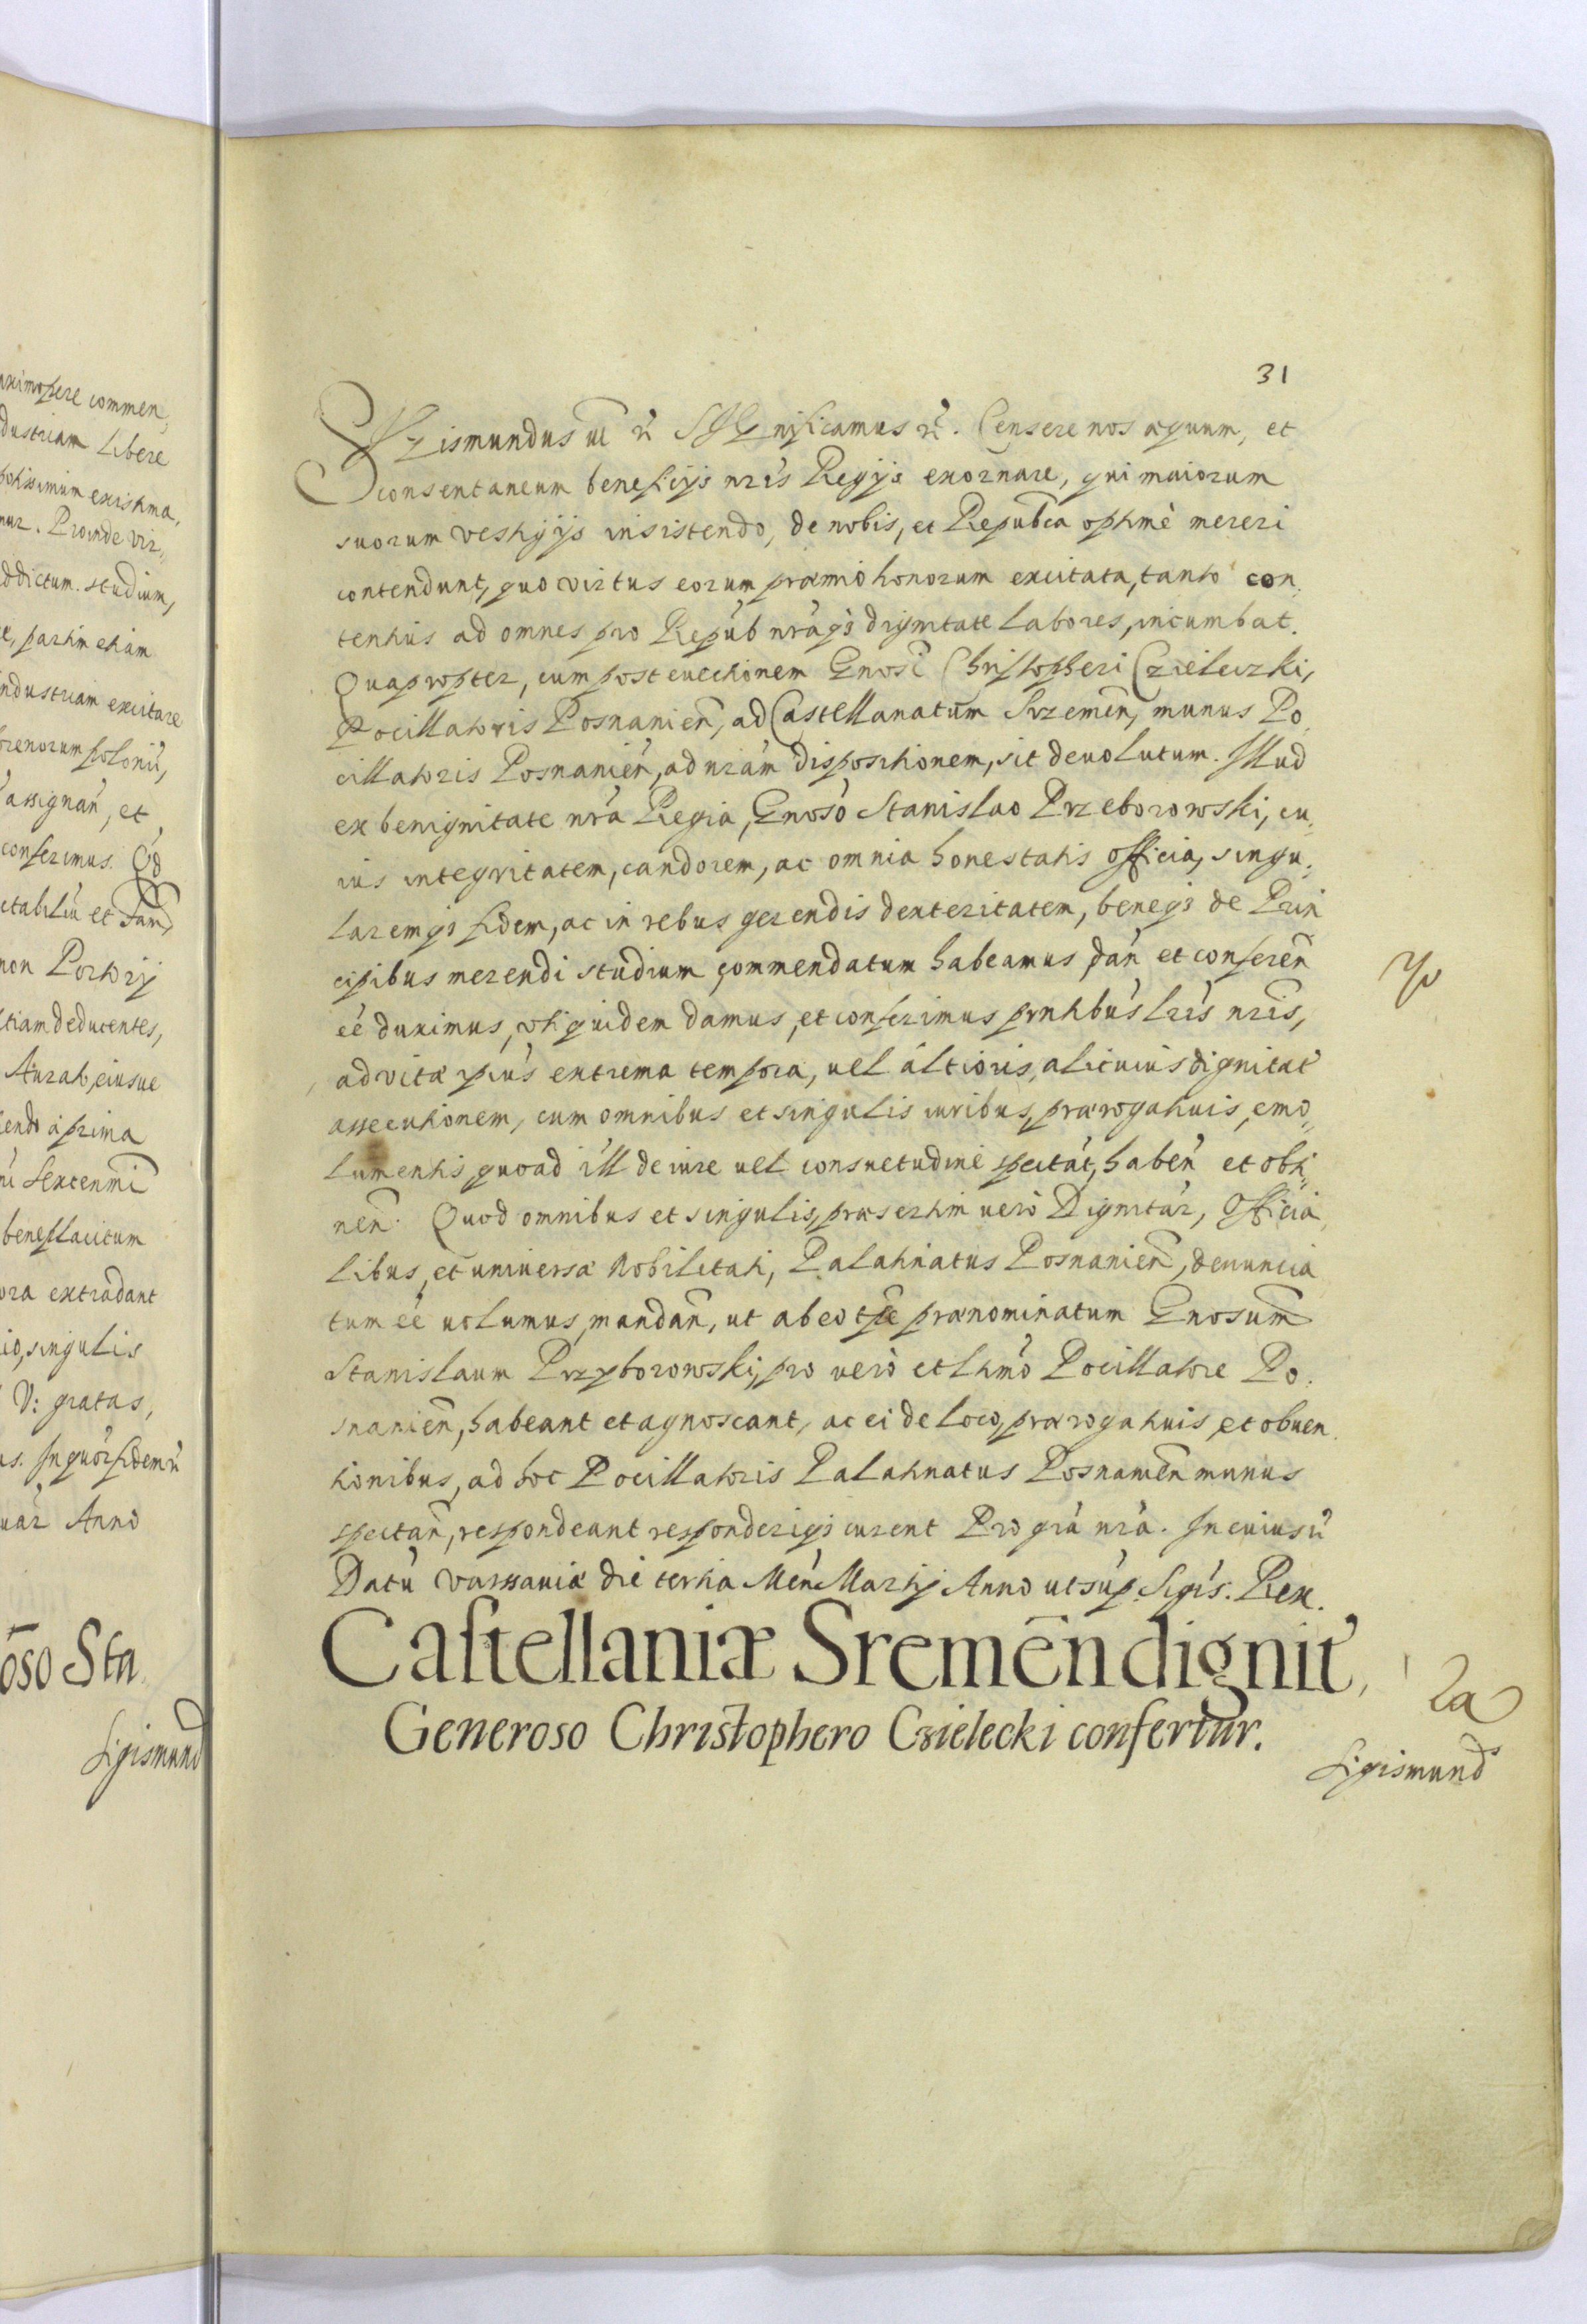 aximopere commen,
dustriam Libere
potissimum existima,
mur. Proinde vir,,
ddictum. studium,
e, partim etiam
ndustriam excitare
orenorum poloniu,
assignan, et
conferimus. Qd
ctabiliu et Fam,
non Portorij
tiam deducentes,
Aurati, eiusue
endo à prima
Sexcenmi
beneplacitum
ora extradant
io, singulis
V: gratas,
us. In quor fidem rẽ
uar Anno
oso Sta
Sigismund
31
Sigismundus ut rẽ Significamus rẽ. Censere nos æquum, et
consentaneum beneficijs nris Regijs exornare, qui maiorum
suorum vestigijs insistendo, de nobis, et Repubca optimè mereri
contendunt, quo virtus eorum præmio honorum excitata, tanto con,
tentius ad omnes pro Repub nraqз dignitate labores, incumbat.
Quapropter, cum post euectionem Gnosi Christopheri Czieleczki,
Pocillatoris Posnanien, ad Castellanatum Srzemen, munus Po,
cillatoris Posnanien, ad nram dispositionem, sit deuolutum. Illud
ex benignitate nra Regia, Gnoso Stanislao Przeborowski, cu,
ius integritatem, candorem, ac omnia honestatis officia, singu,
laremqз fidem, ac in rebus gerendis dexteritatem, beneqз de Prin
cipibus merendi studium commendatum habeamus, dan et conferen
ee duximus, vti quidem damus, et conferimus pntibus lris nris,
ad vitæ ipius extrema tempora, uel altioris, alicuius dignitat
assecutionem, cum omnibus et singulis iuribus, prærogatiuis, emo,,
lumentis quoad ill de iure uel consuetudine spectat, haben et obti,,
nen. Quod omnibus et singulis, præsertim uerò Dignitar, Officia,
libus, et uniuersæ Nobilitati, Palatinatus Posnanien, denuncia
tum ee uolumus, mandan, ut ab eo tpe prænominatum Gnosum
Stanislaum Przyborowski, pro uerò et Ltimo Pocillatore Po,
snanien, habeant et agnoscant, ac ei de loco, prærogatiuis, et obuen,
tionibus, ad hoc Pocillatoris Palatinatus Posnanien munus
spectan, respondeant responderiqз curent Pro gra nra. In cuius rẽ
Datu Varssauiæ die tertia Men Martij Anno ut sup. Sigis. Rex.
Castellaniæ Sremen dignit,
Generoso Christophero Czielecki confertur.
Sigismund